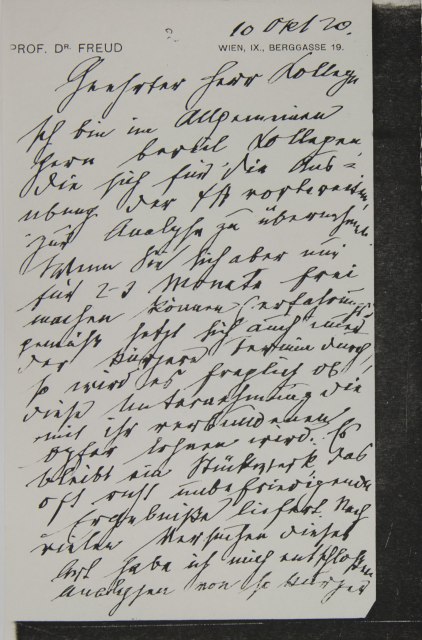 10 Okt 20.
PROF. DR. FREUD WIEN, IX., BERGGASSE 19.
Geehrter Herr Kollege
Ich bin im Allgemeinen
gern bereit Kollegen
die sich für die Aus-
übung der ΨA vorbereiten,
zur Analyse zu übernehmen.
Wenn Sie sich aber nur
für 2-3 Monate frei
machen können (erfahrungs-
gemäß setzt sich auch immer
der kürzere Termin durch)
so wird es fraglich ob
diese Unternehmung die
mit ihr verbundenen
Opfer lohnen wird. Es
bleibt ein Stückwerk, das
oft recht unbefriedigende
Ergebnisse liefert. Nach
vielen Versuchen dieser
Art habe ich mich entschlossen
Analysen von so kurzer